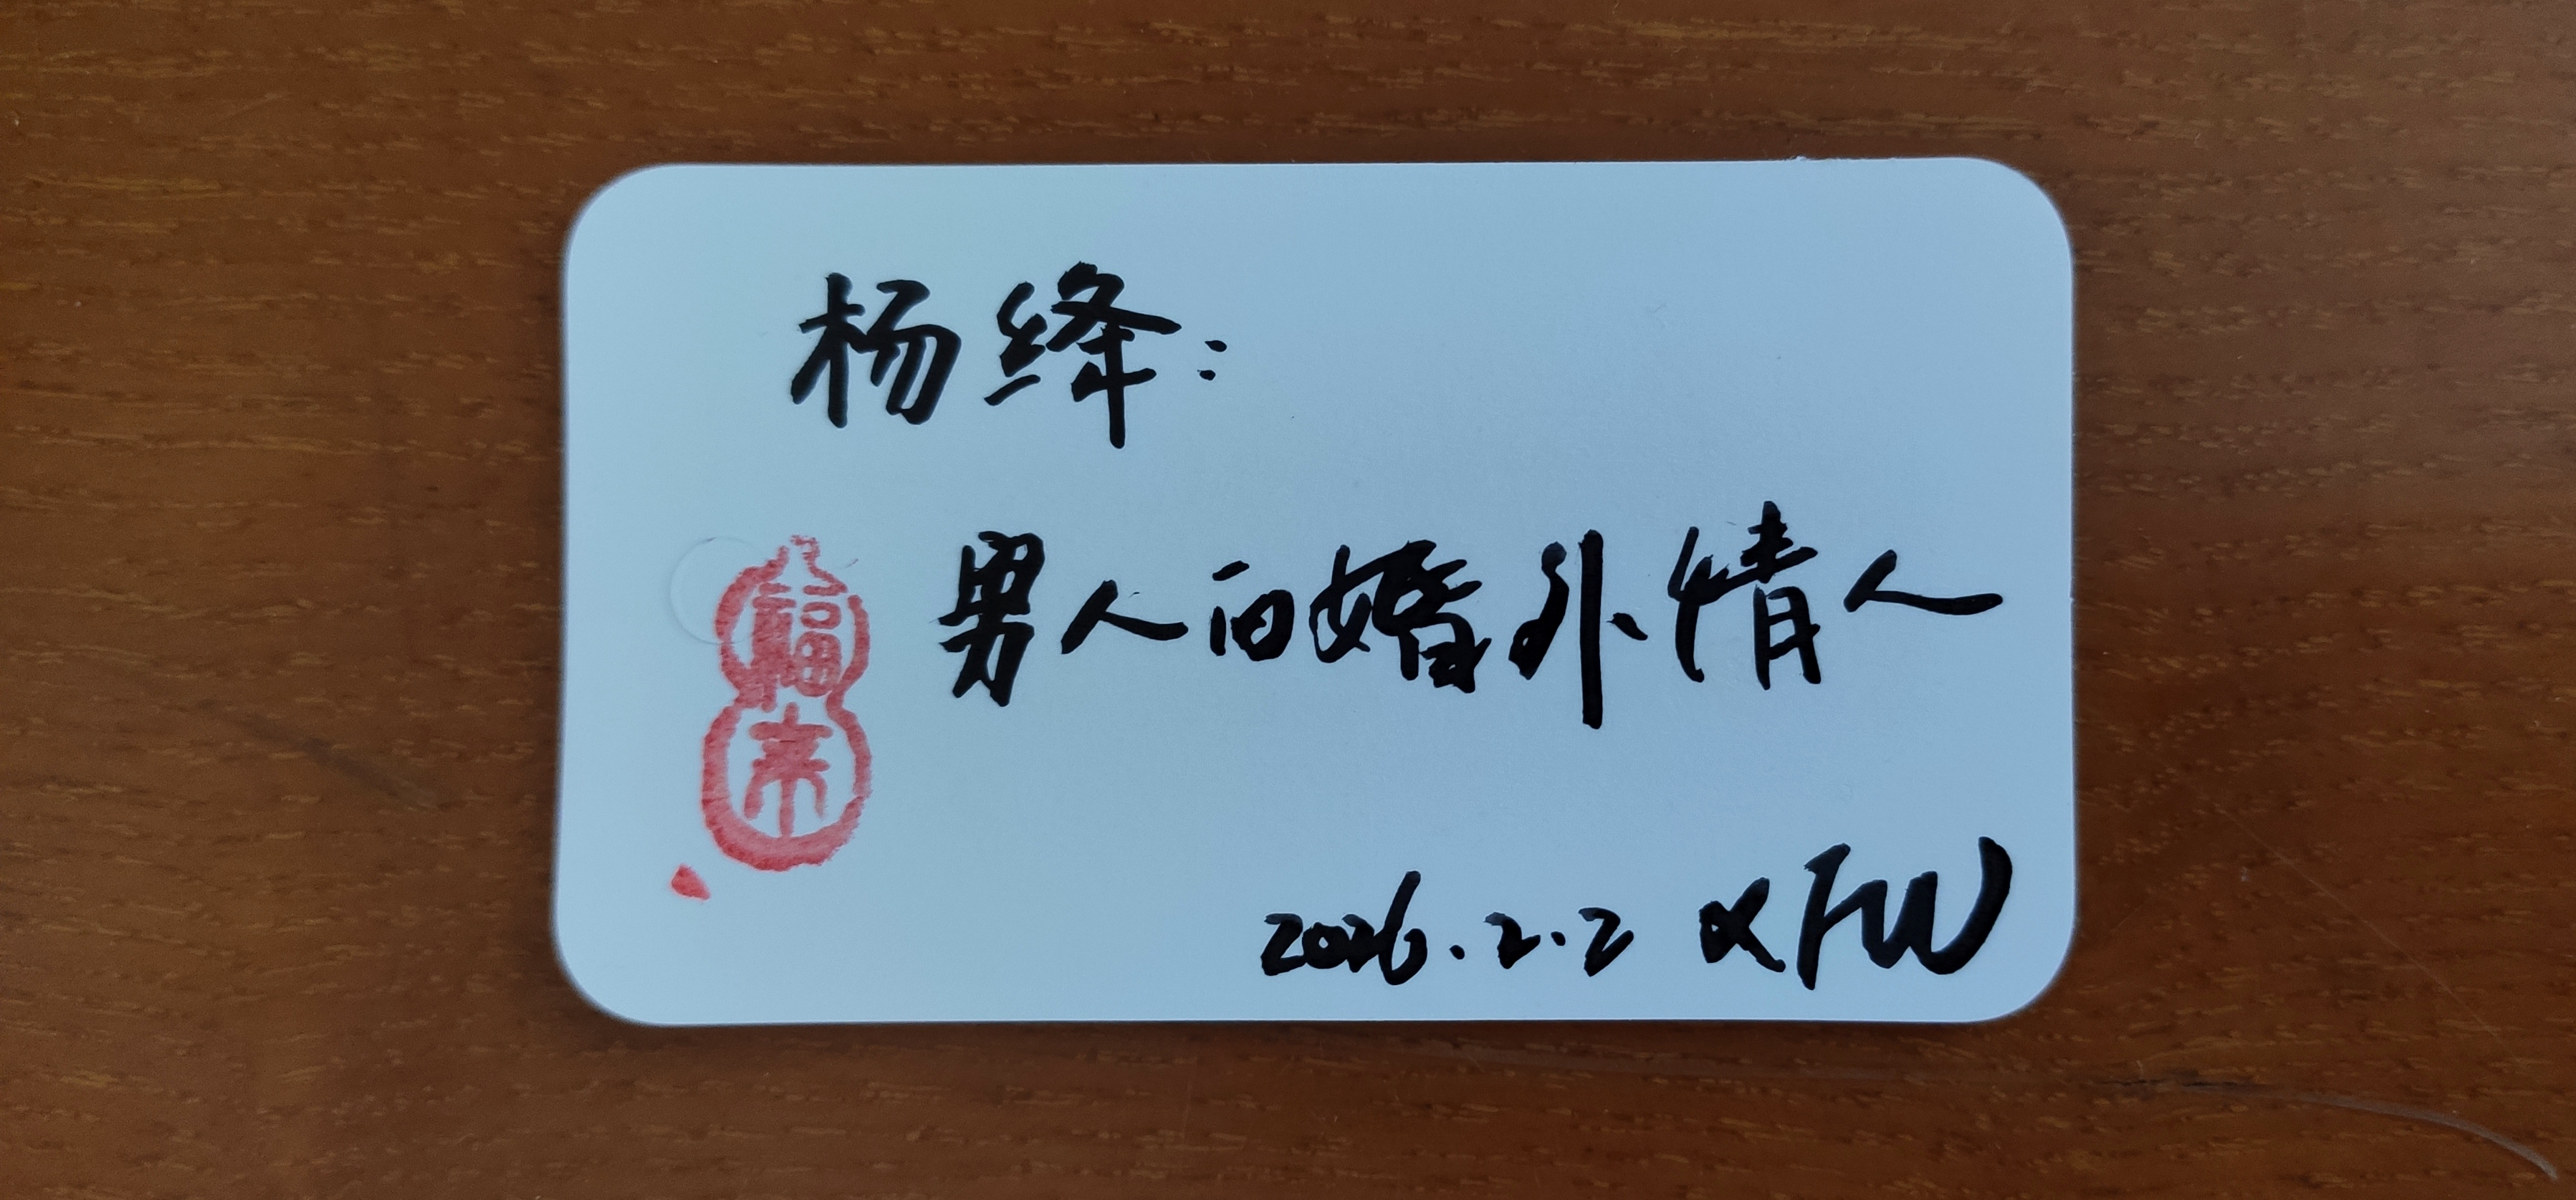 杨绛：
男人的婚外情人
福来
2026.2.2